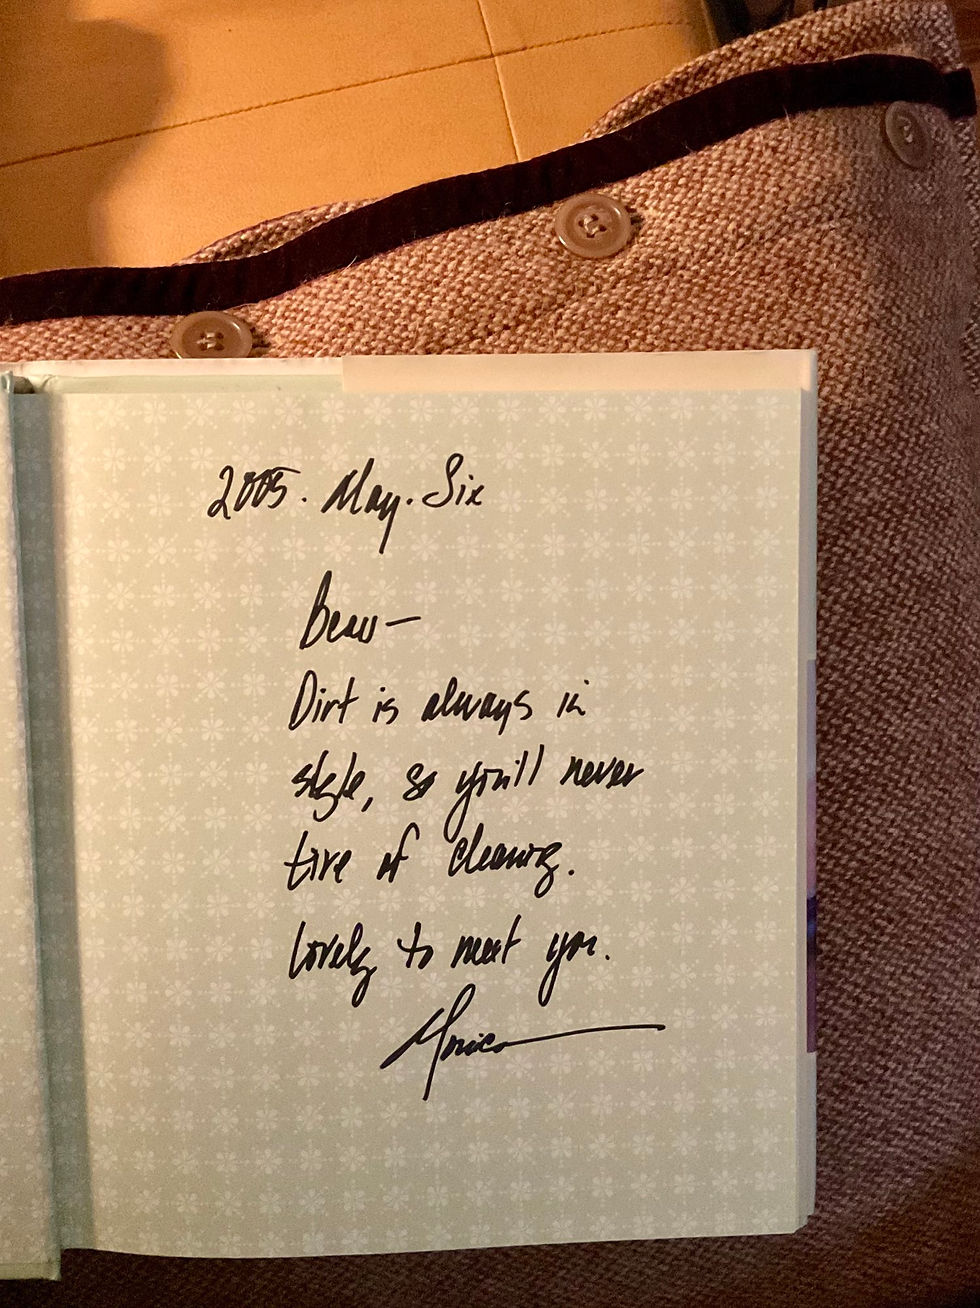 2005. May. Six
Beau—
Dirt is always in
style, so you'll never
tire of cleaning.
Lovely to meet you.
Monica